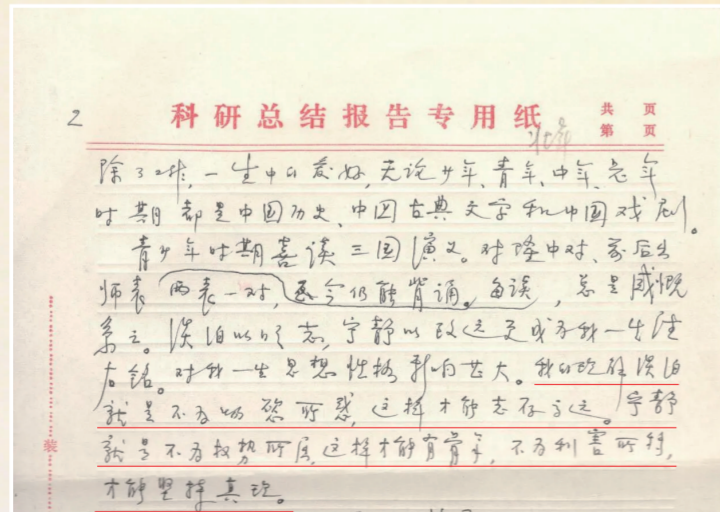 2
科研总结报告专用纸
共 页
第 页
除了工作,一生中的爱好,无论少年、青年、中年、老年
时期都是中国历史、中国古典文学和中国戏剧。
青少年时期喜读三国演义。对隆中对、前后出
师表 两表一对,至今仍能背诵。每读,总是感慨
系之。淡泊以明志,宁静以致远更成为我一生座
右铭。对我一生思想性格影响甚大。我的理解淡泊
就是不为物欲所惑,这样才能志存高远。宁静
就是不为权势所屈,这样才能有骨气,不为利害所移,
才能坚持真理。
装